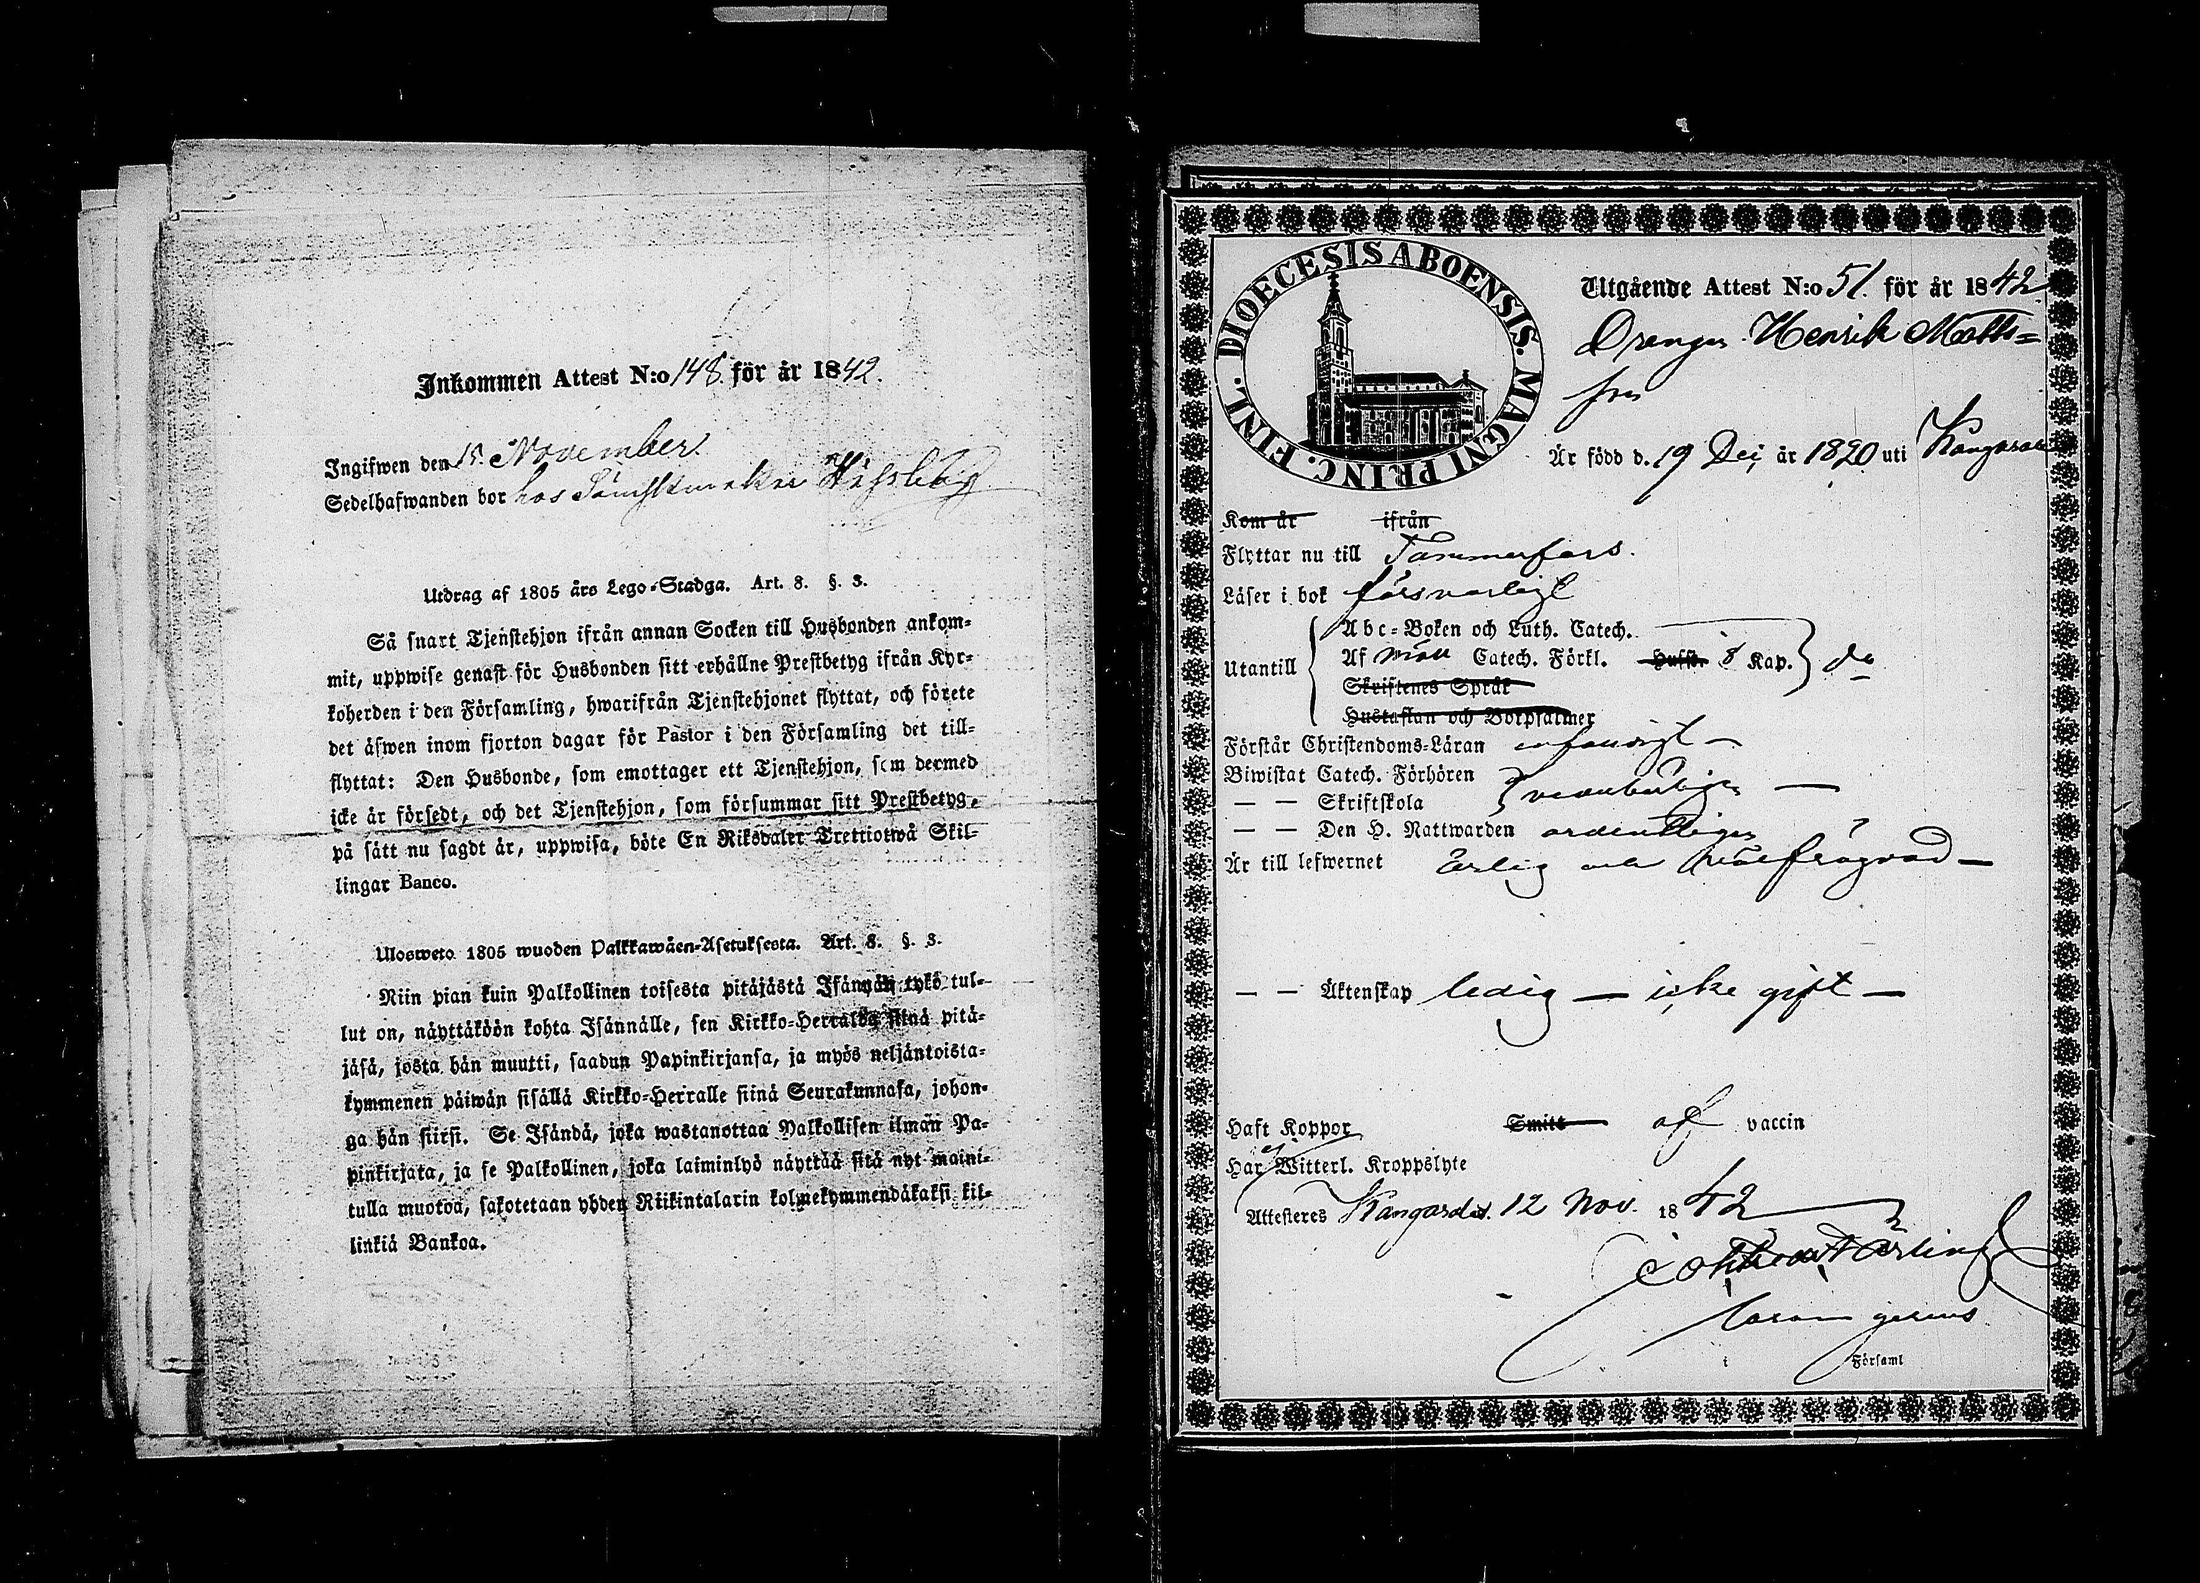 Inkommen Attest N:o 148. för år 1842.
Ingifwen den 15. November.
Sedelhafwanden bor hos
Utdrag af 1805 års Lego-Stadga. Art. 8. §. 3.
Så snart Tjenstehjon ifrån annan Socken till Husbonden ankom-
mit, uppwise genast för Husbonden sitt erhållne Prestbetyg ifrån Kyr-
koherden i den Församling, hwarifrån Tjenstehjonet flyttat, och förete
det äfwen inom fjorton dagar för Pastor i den Församling det till-
flyttat: Den Husbonde, som emottager ett Tjenstehjon, som dermed
icke är försedt, och det Tjenstehjon, som försummar sitt Prestbetyg,
på sätt nu sagdt är, uppwisa, böte En Riksdaler Trettiotwå Skil-
lingar Banco.
Ulosweto 1805 wuoden Palkkawäen-Asetuksesta. Art. 8. §. 3.
Niin pian kuin Palkollinen toisesta pitäjästä Isännän tykö tul-
lut on, näyttäköön kohta Isännälle, sen Kirkko-Herralda siinä pitä-
jäsä, josta hän muutti, saadun Papinkirjansa, ja myös neljäntoista-
kymmenen päiwän sisällä Kirkko-Herralle siinä Seurakunnasa, johon-
ga hän siirsi. Se Isändä, joka wastanottaa Palkollisen ilman Pa-
pinkirjata, ja se Palkollinen, joka laiminlyö näyttää sitä nyt maini-
tulla muotoa, sakotetaan yhden Riikintalarin kolmekymmendäkaksi kil-
linkiä Bankoa.
DIOECESIS ABOENSIS. MAGNI PRINC. FINL.
Utgående Attest N:o 51. för år 1842
Drengen Henrik Matts=
son
Är född d. 19 Dec. år 1820 uti Kangasala
Kom år ifrån
Flyttar nu till Tammerfors.
Läser i bok försvarligt
Utantill
Abc-Boken och Luth. Catech.
Af Möll Catech. Förkl. Hufst. 8 Kap. do
Skriftenes Språk
Hustaflan och Botpsalmer
Förstår Christendoms-Läran enfaldigt —
Biwistat Catech. Förhören
— — Skriftskola vederbörligen —
— — Den H. Nattwarden ordentligen
Är till lefwernet ärlig och wälfrägdad —
— — Äktenskap ledig — icke gift —
Haft Koppor Smitt af vaccin
Har ej Witterl. Kroppslyte
Attesteres Kangasala d. 12 Nov. 1842
i Församl